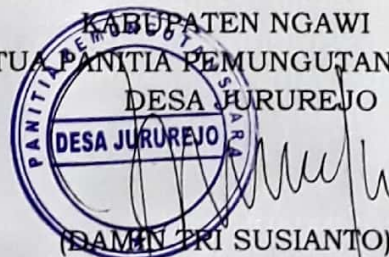 KABUPATEN NGAWI
TUA PANITIA PEMUNGUTAN
DESA JURUREJO
PANITIA PEMUNGUTAN SUARA
DESA JURUREJO
(DAMIN TRI SUSIANTO)